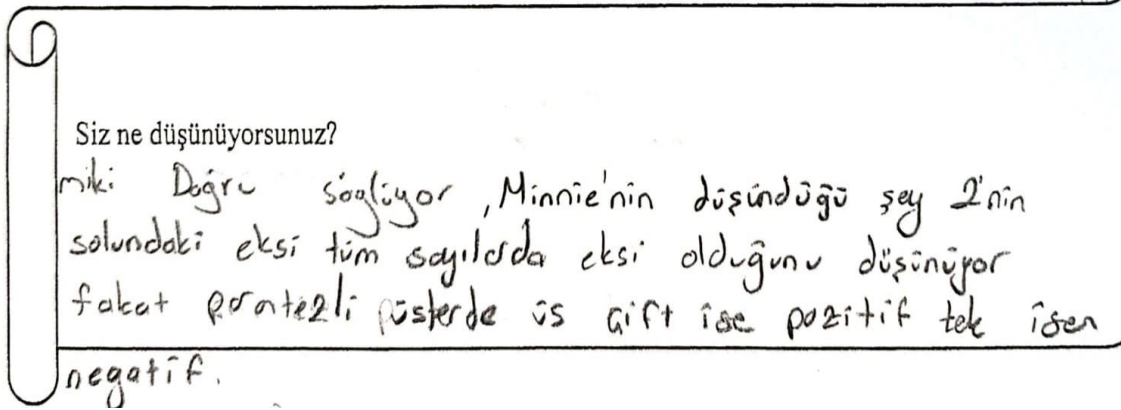 Siz ne düşünüyorsunuz?
miki Doğru söylüyor, Minnie'nin düşündüğü şey 2'nin
solundaki eksi tüm sayılarda eksi olduğunu düşünüyor
fakat parantezli üslerde üs çift ise pozitif tek isen
negatif.